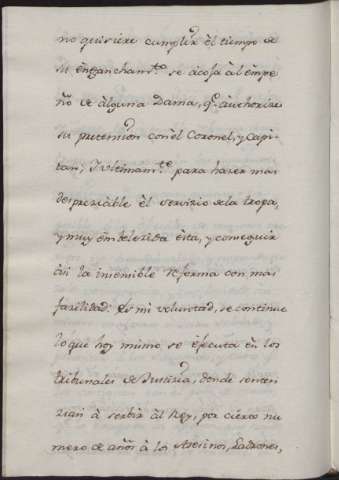 no quisiere cumplir èl tiempo de
su enganchamto. se àcoja àl empe
ño de àlguna Dama, q.e àuthorize
su pretension con èl Coronel, y Capi-
tan; Y ultimamte. para hazer mas
despreciable èl servicio de la tropa,
y muy èmbelesida èsta, y conseguir
àsi la insensible Reforma con mas
facilidad: Es mi voluntad, se continue
lo que hoy mismo se èjecuta èn los
tribunales de Justicia, donde senten
zian à serbir àl Rey, por cierto nu
mero de años à los Asesinos, Ladrones,